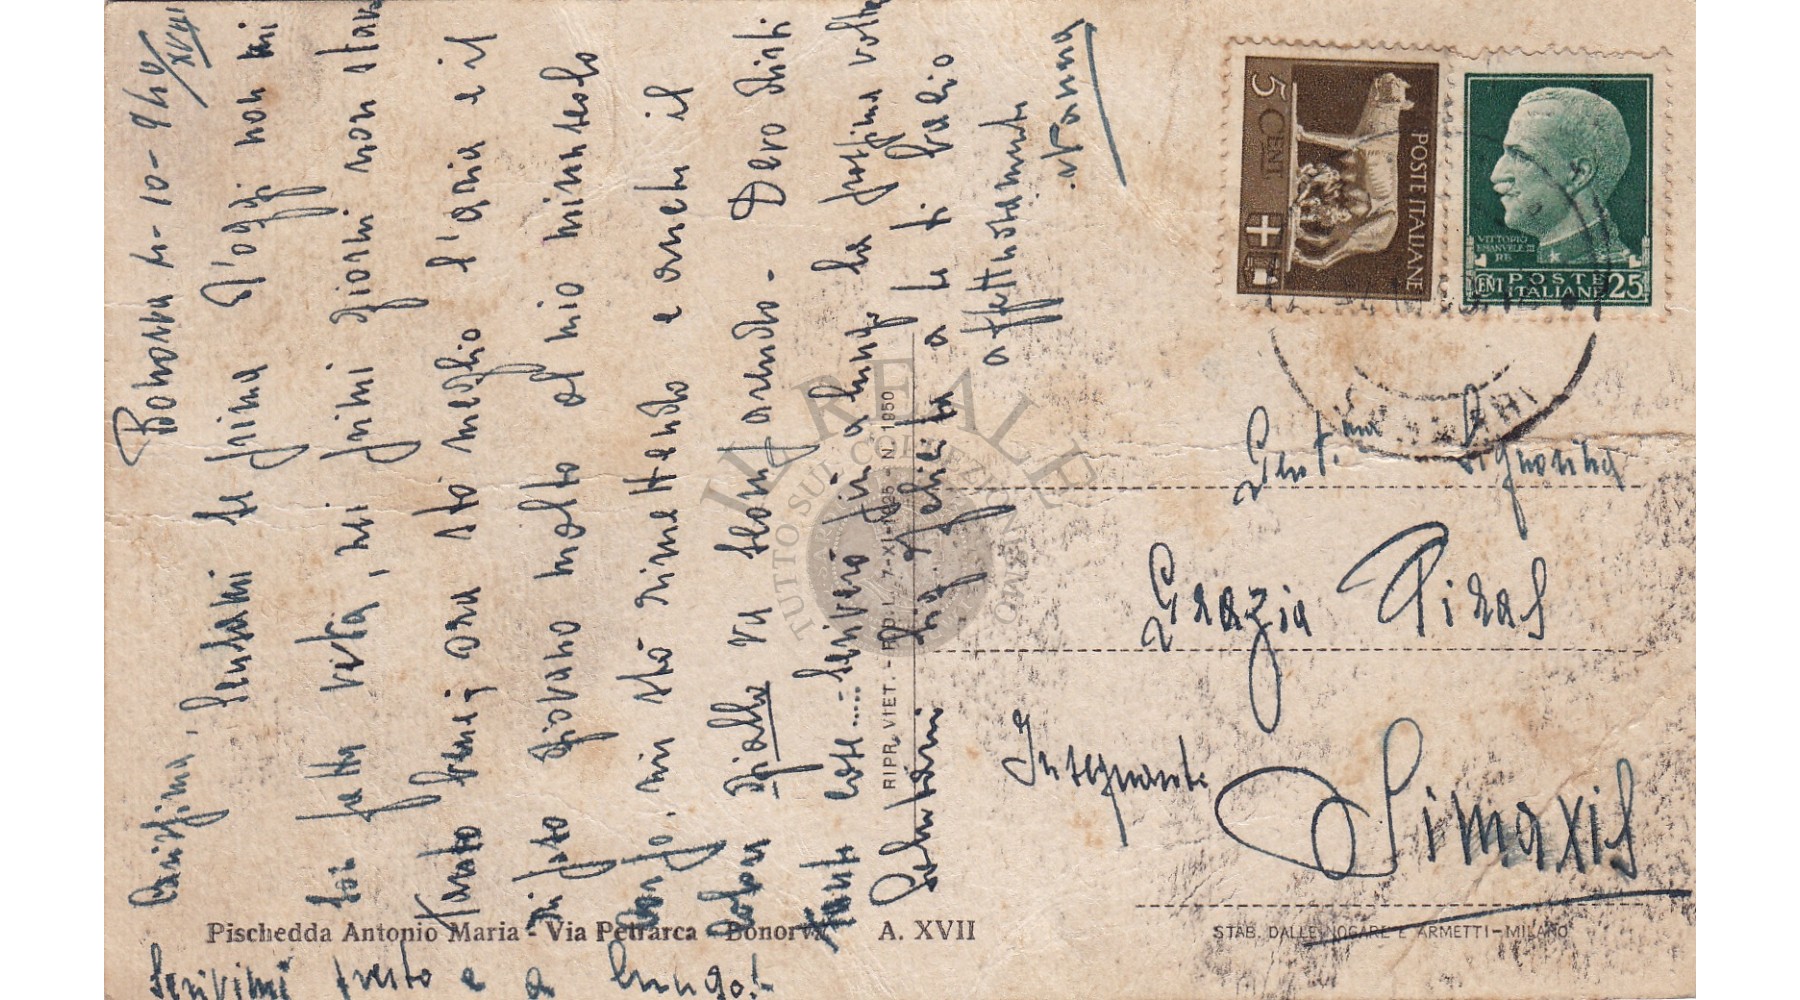 Bonorva 4-10-940/XVIII
Carissima,
Scusami se prima d'oggi non mi
son fatta viva, nei primi giorni non stavo
tanto bene; ora stò meglio l'aria e il
riposo giovano molto al mio minuscolo
corpo, mi stò rimettendo e anche il
colore giallo va scomparendo - Devo dirti
tante cose.... Scriverò più a lungo la prossima volta
Salutami tua e a te ti bacio
affettuosamente
Nanna
Scrivimi presto e a lungo!
Pischedda Antonio Maria - Via Petrarca - Bonorva A. XVII
RIPR. VIET. - R.D.L. 7-XI-1925 - N. 1950
5 CENT
POSTE ITALIANE
VITTORIO EMANVELE III RE
CENT POSTE ITALIANE 25
Gent.ma Signorina
Grazia Piras
Insegnante
Simaxis
STAB. DALLE NOGARE E ARMETTI - MILANO
IL REALE
TUTTO SUL COLLEZIONISMO